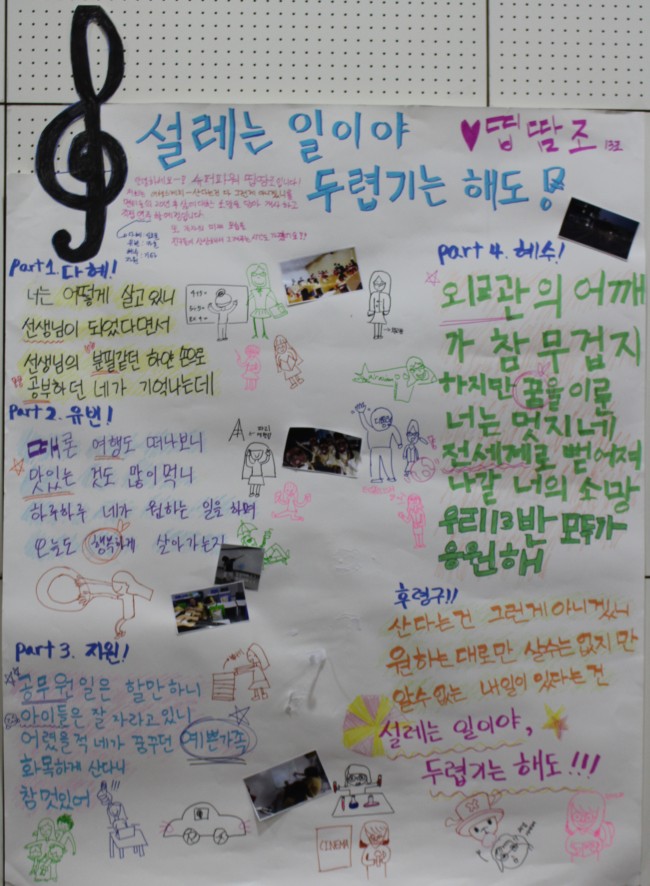 설레는 일이야
♥띱땀조 13조
두렵기는 해도!
part 1. 다혜!
너는 어떻게 살고 있니
선생님이 되었다면서
선생님의 분필같던 하얀 손으로
공부하던 네가 기억나는데
part 2. 유빈!
때론 여행도 떠나보니
맛있는 것도 많이 먹니
하루하루 네가 원하는 일을 하며
오늘도 행복하게 살아가는지
part 3. 지원!
공무원 일은 할만하니
아이들은 잘 자라고 있니
어렸을적 네가 꿈꾸던 예쁜가족
화목하게 산다니
참 멋있어
part 4. 혜수!
외교관의 어깨
가 참 무겁지
하지만 꿈을 이룬
너는 멋지네
전세계로 뻗어져
나갈 너의 소망
우리 13반 모두가
응원해
후렴구!!
산다는건 그런게 아니겠니
원하는 대로만 살수는 없지만
알수 없는 내일이 있다는 건
설레는 일이야,
두렵기는 해도!!!
CINEMA